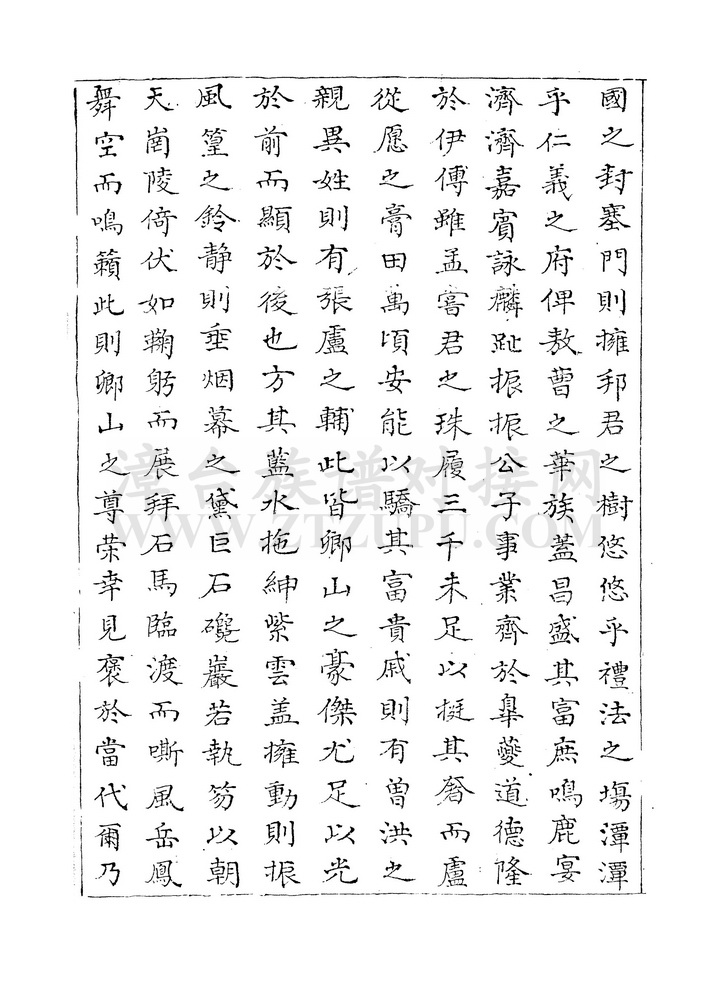 國之封塞門則擁邦君之樹悠悠乎禮法之塲潭潭
乎仁義之府俾敖曹之華族蓋昌盛其富庶鳴鹿宴
濟濟嘉賓詠麟趾振振公子事業齊於臯夔道德隆
於伊傅雖孟甞君之珠履三千未足以挺其奢而盧
從愿之膏田萬頃安能以驕其富貴戚則有曾洪之
親異姓則有張盧之輔此皆鄉山之豪傑尤足以光
於前而顯於後也方其藍水拖紳紫雲盖擁動則振
風篁之鈴静則垂烟幕之黛巨石巉巖若執笏以朝
天崗陵倚伏如鞠躬而展拜石馬臨渡而嘶風岳鳳
舞空而鳴籟此則鄉山之尊荣幸見褒於當代爾乃
漳台族谱对接网
WWW.ZTZUPU.COM